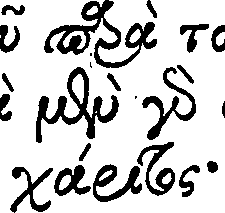 ῦ παρὰ το
ὰ μὲν γὰρ
χάριτος·